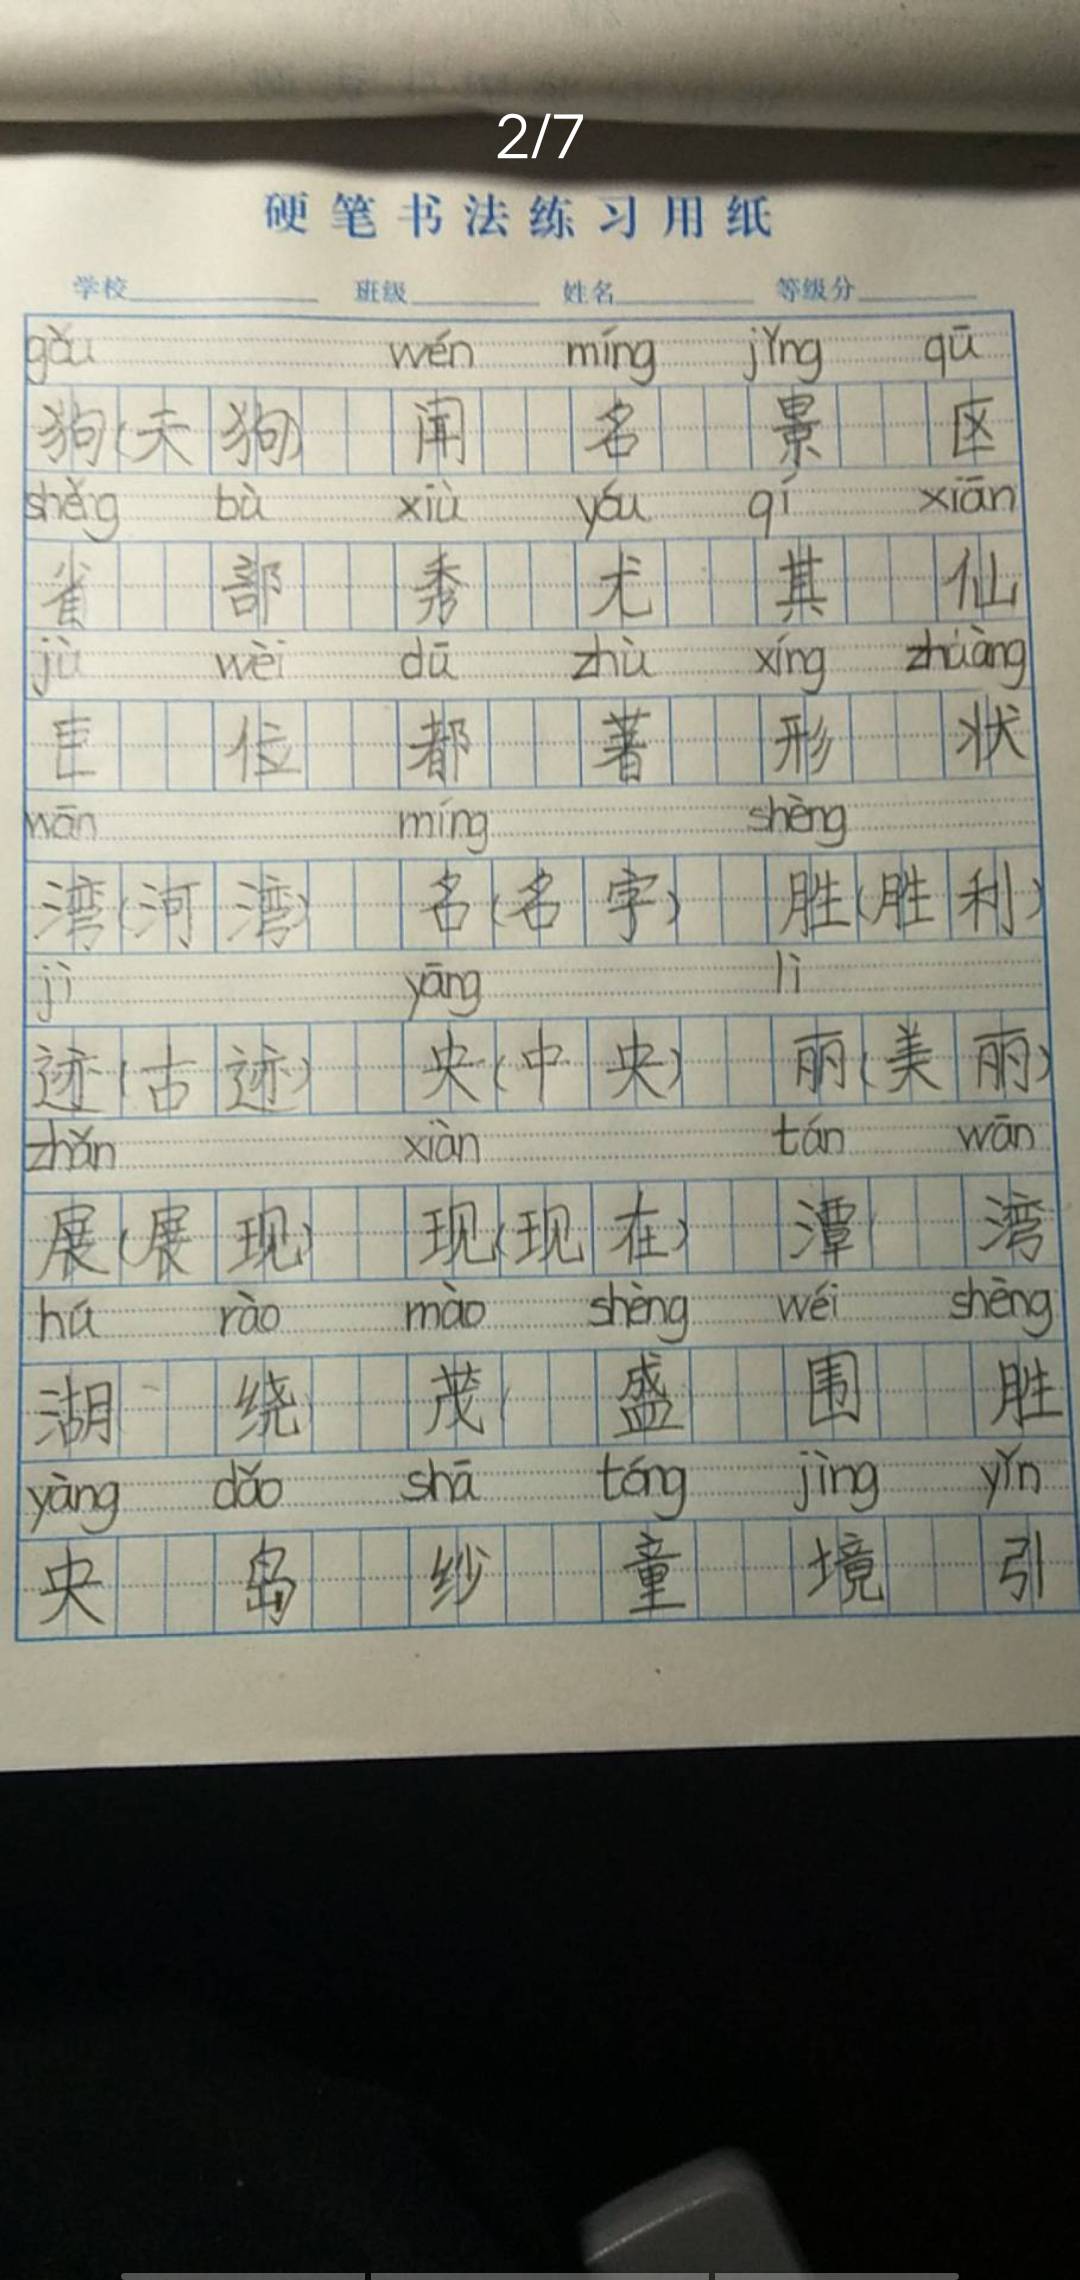 2/7
硬笔书法练习用纸
学校 班级 姓名 等级分
gǒu wén míng jǐng qū
狗(天狗) 闻 名 景 区
shěng bù xiù yóu qí xiān
省 部 秀 尤 其 仙
jù wèi dū zhù xíng zhuàng
巨 位 都 著 形 状
wān míng shèng
湾(河湾) 名(名字) 胜(胜利)
jì yāng lì
迹(古迹) 央(中央) 丽(美丽)
zhǎn xiàn tán wān
展(展现) 现(现在) 潭 湾
hú rào mào shèng wéi shèng
湖 绕 茂 盛 围 胜
yàng dǎo shā tóng jìng yǐn
央 岛 纱 童 境 引